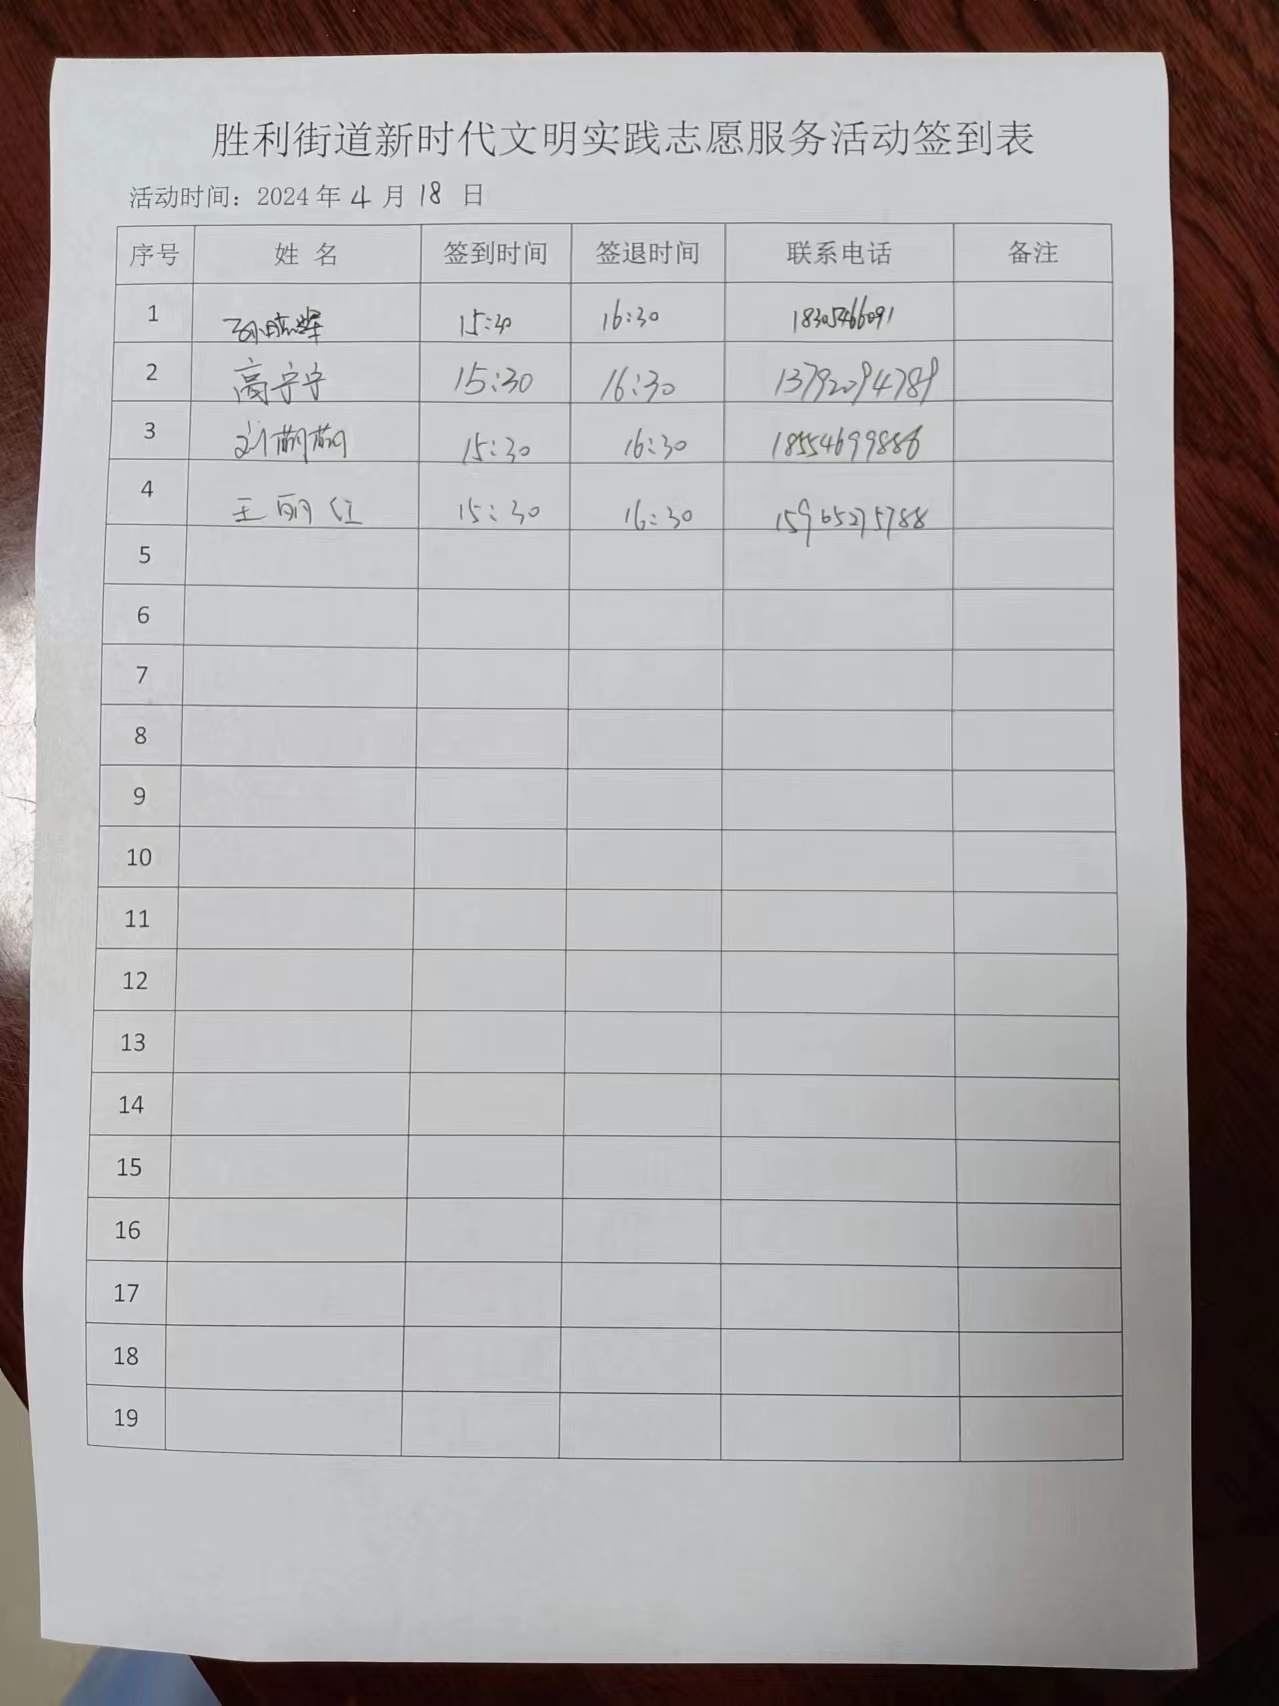 胜利街道新时代文明实践志愿服务活动签到表
活动时间：2024 年 4 月 18 日
序号 姓 名 签到时间 签退时间 联系电话 备注
1 15:30 16:30 18305466091
2 高宁宁 15:30 16:30 13792094789
3 刘萌萌 15:30 16:30 18554699886
4 王丽红 15:30 16:30 15965275788
5
6
7
8
9
10
11
12
13
14
15
16
17
18
19